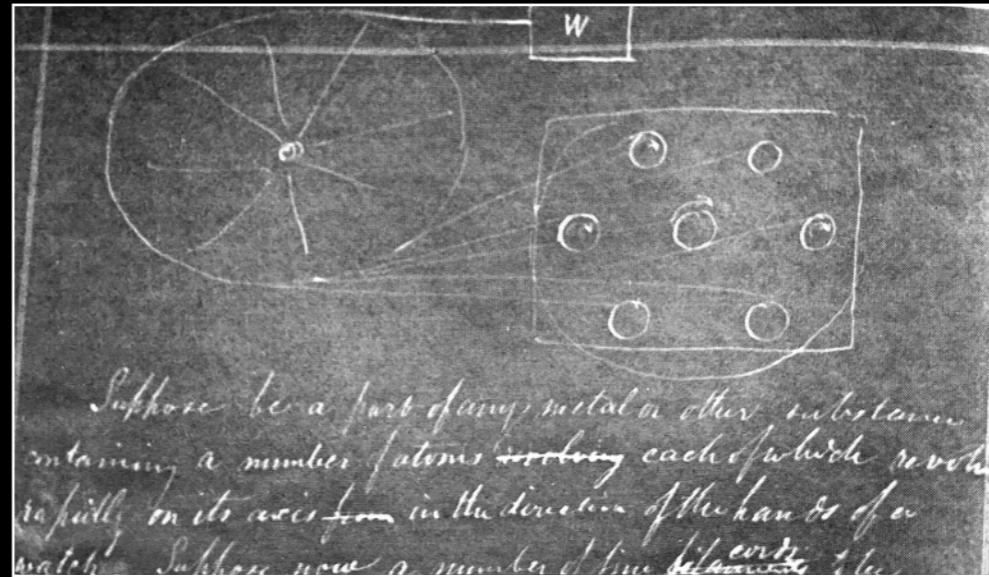 W
Suppose be a part of any metal or other substance
containing a number of atoms revolving each of which revolv
rapidly on its axis from in the direction of the hands of a
watch Suppose now a number of fine cords